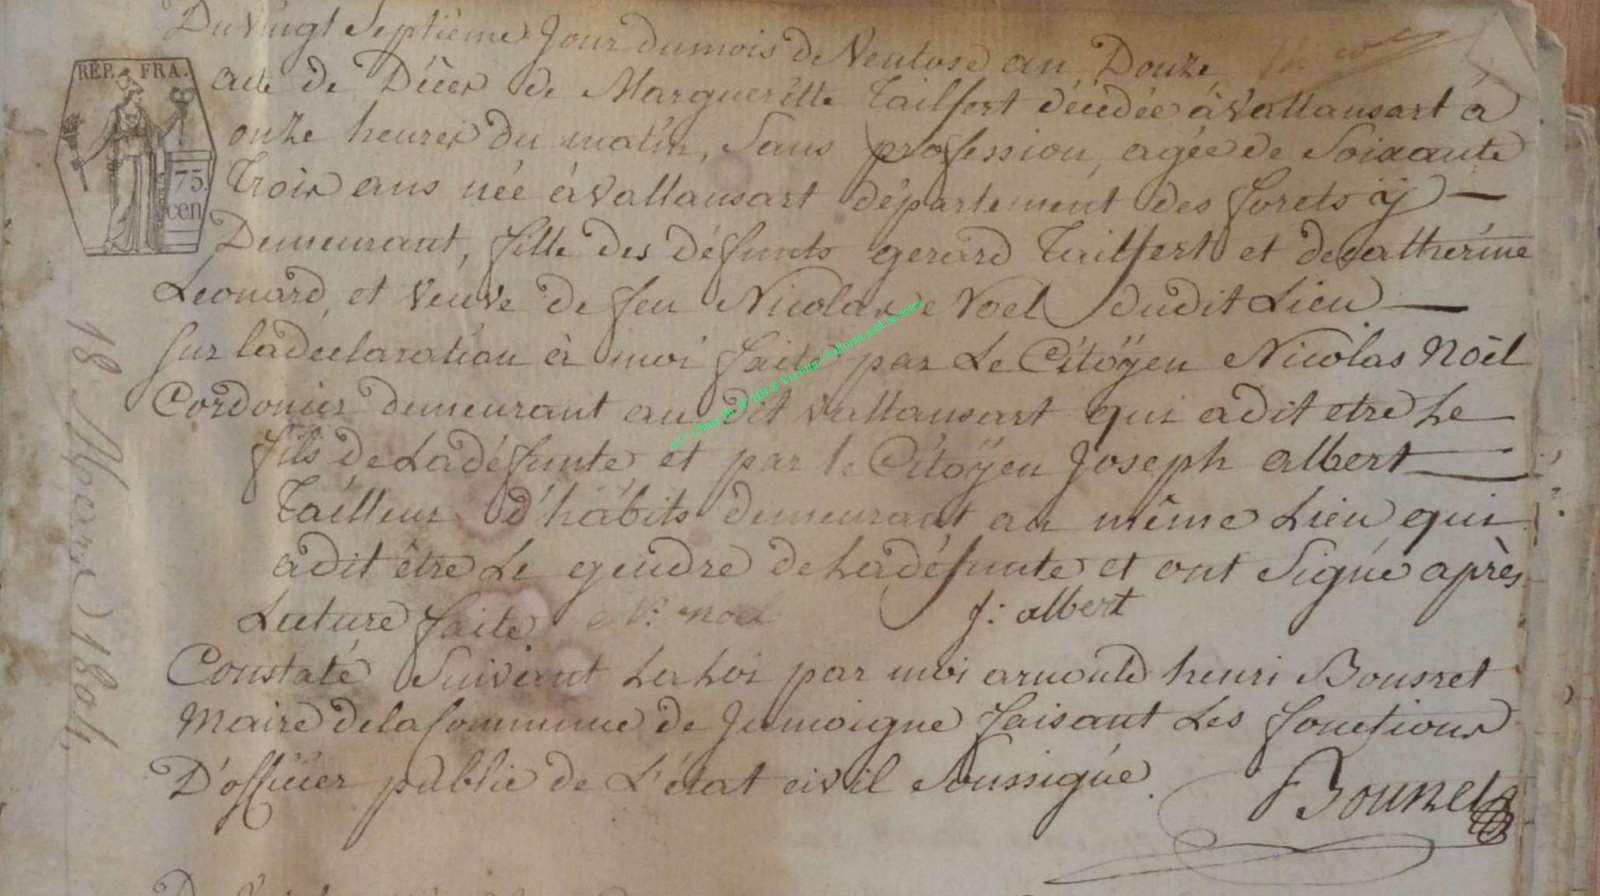 Du Vingt Septième Jour du mois de Ventose an Douze
acte de Décès de Margueritte Tailfert décédée à vallansart à
REP. FRA.
onze heures du matin, Sans profession, agée de Soixante
75.
cen
Trois ans née à vallansart département des forets ÿ
Demeurant, fille des défunts gerard Tailfert et de catherine
Léonard, et veuve de feu Nicolas Noel dudit Lieu
Sur la declaration à moi faite par Le Citoÿen Nicolas Noël
Cordonier demeurant au dit vallansart qui a dit etre Le
fils de La défunte et par le Citoÿen Joseph albert
Tailleur d'habits demeurant au même Lieu qui
a dit être Le gendre de La défunte et ont Signé après
Lecture faite N: noel J: albert
Constaté Suivant La Loi par moi arnould henri Bousret
Maire de la Commune de Jamoigne faisant Les fonctions
D'officier public de L'état civil Soussigné.
18 Mars 1804.